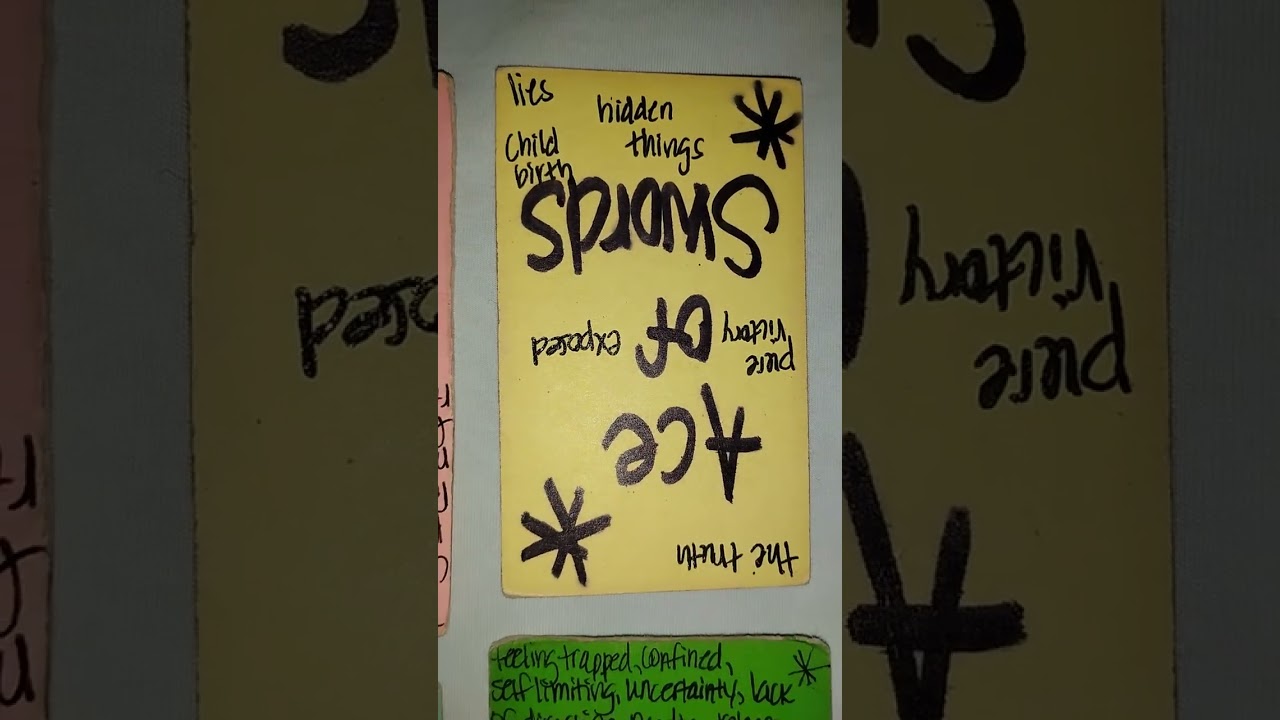 lies
hidden
things
Child
birth
the truth
Ace
of
pure
victory
exposed
Swords
feeling trapped, confined,
self limiting, uncertainty, lack